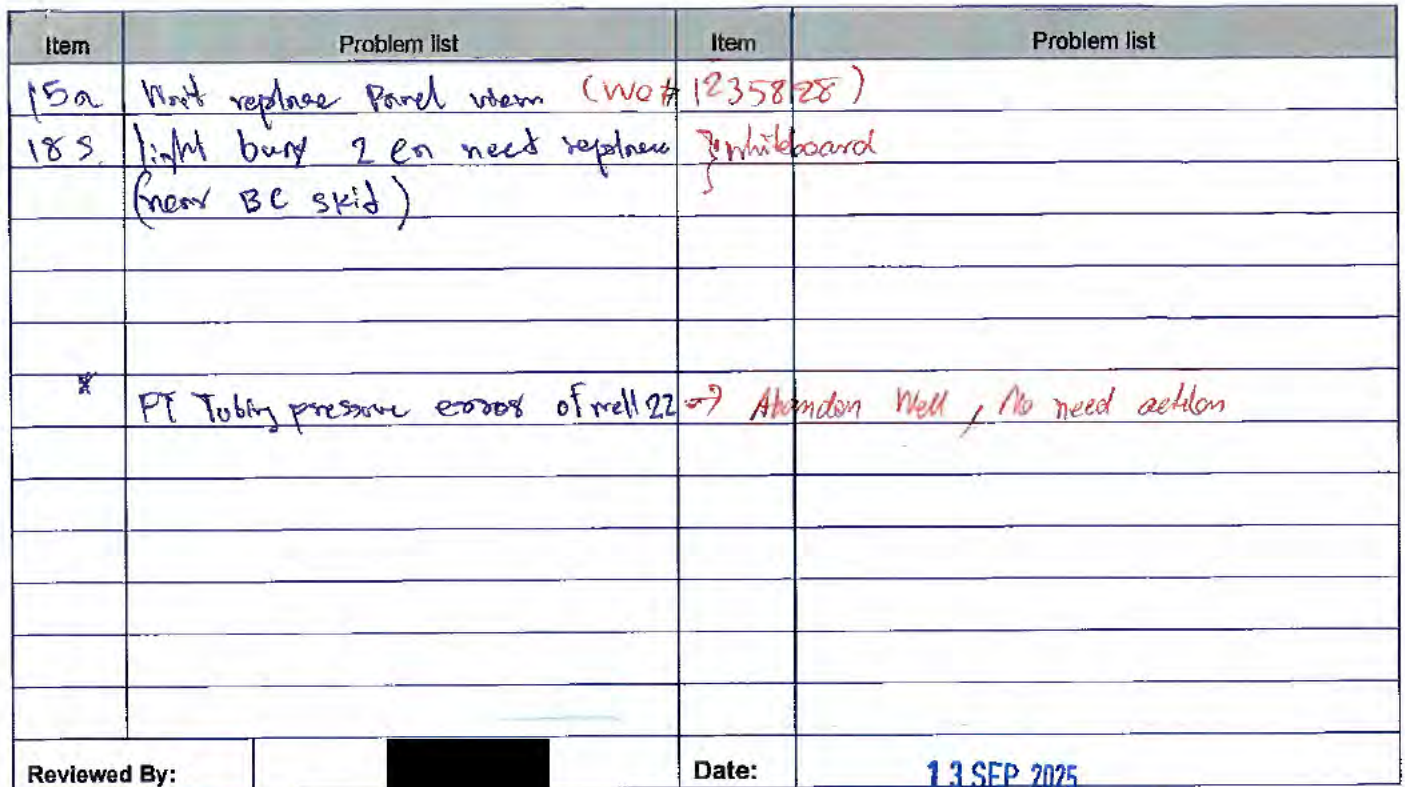 Item Problem list Item Problem list
15a Wait replace Panel view (WO# 1235828)
18 S. light burn 2 ea need replace } whiteboard
(near BC skid)
* PT Tubing pressure error of well 22 → Abandon Well, No need action
Reviewed By: Date: 13 SEP 2025